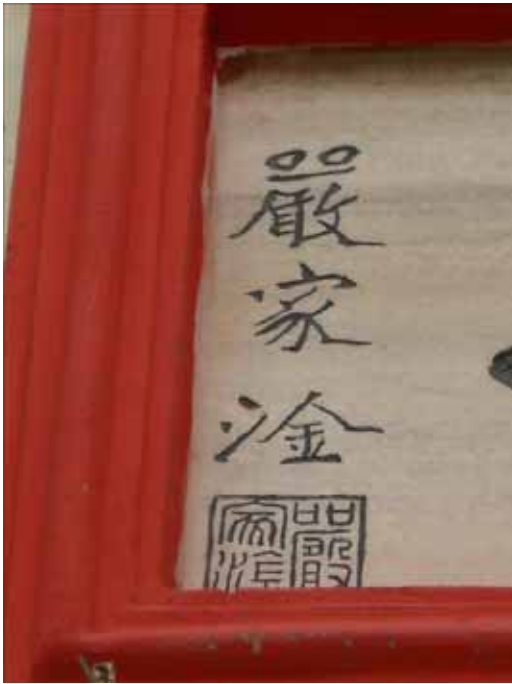 嚴家淦
嚴家淦